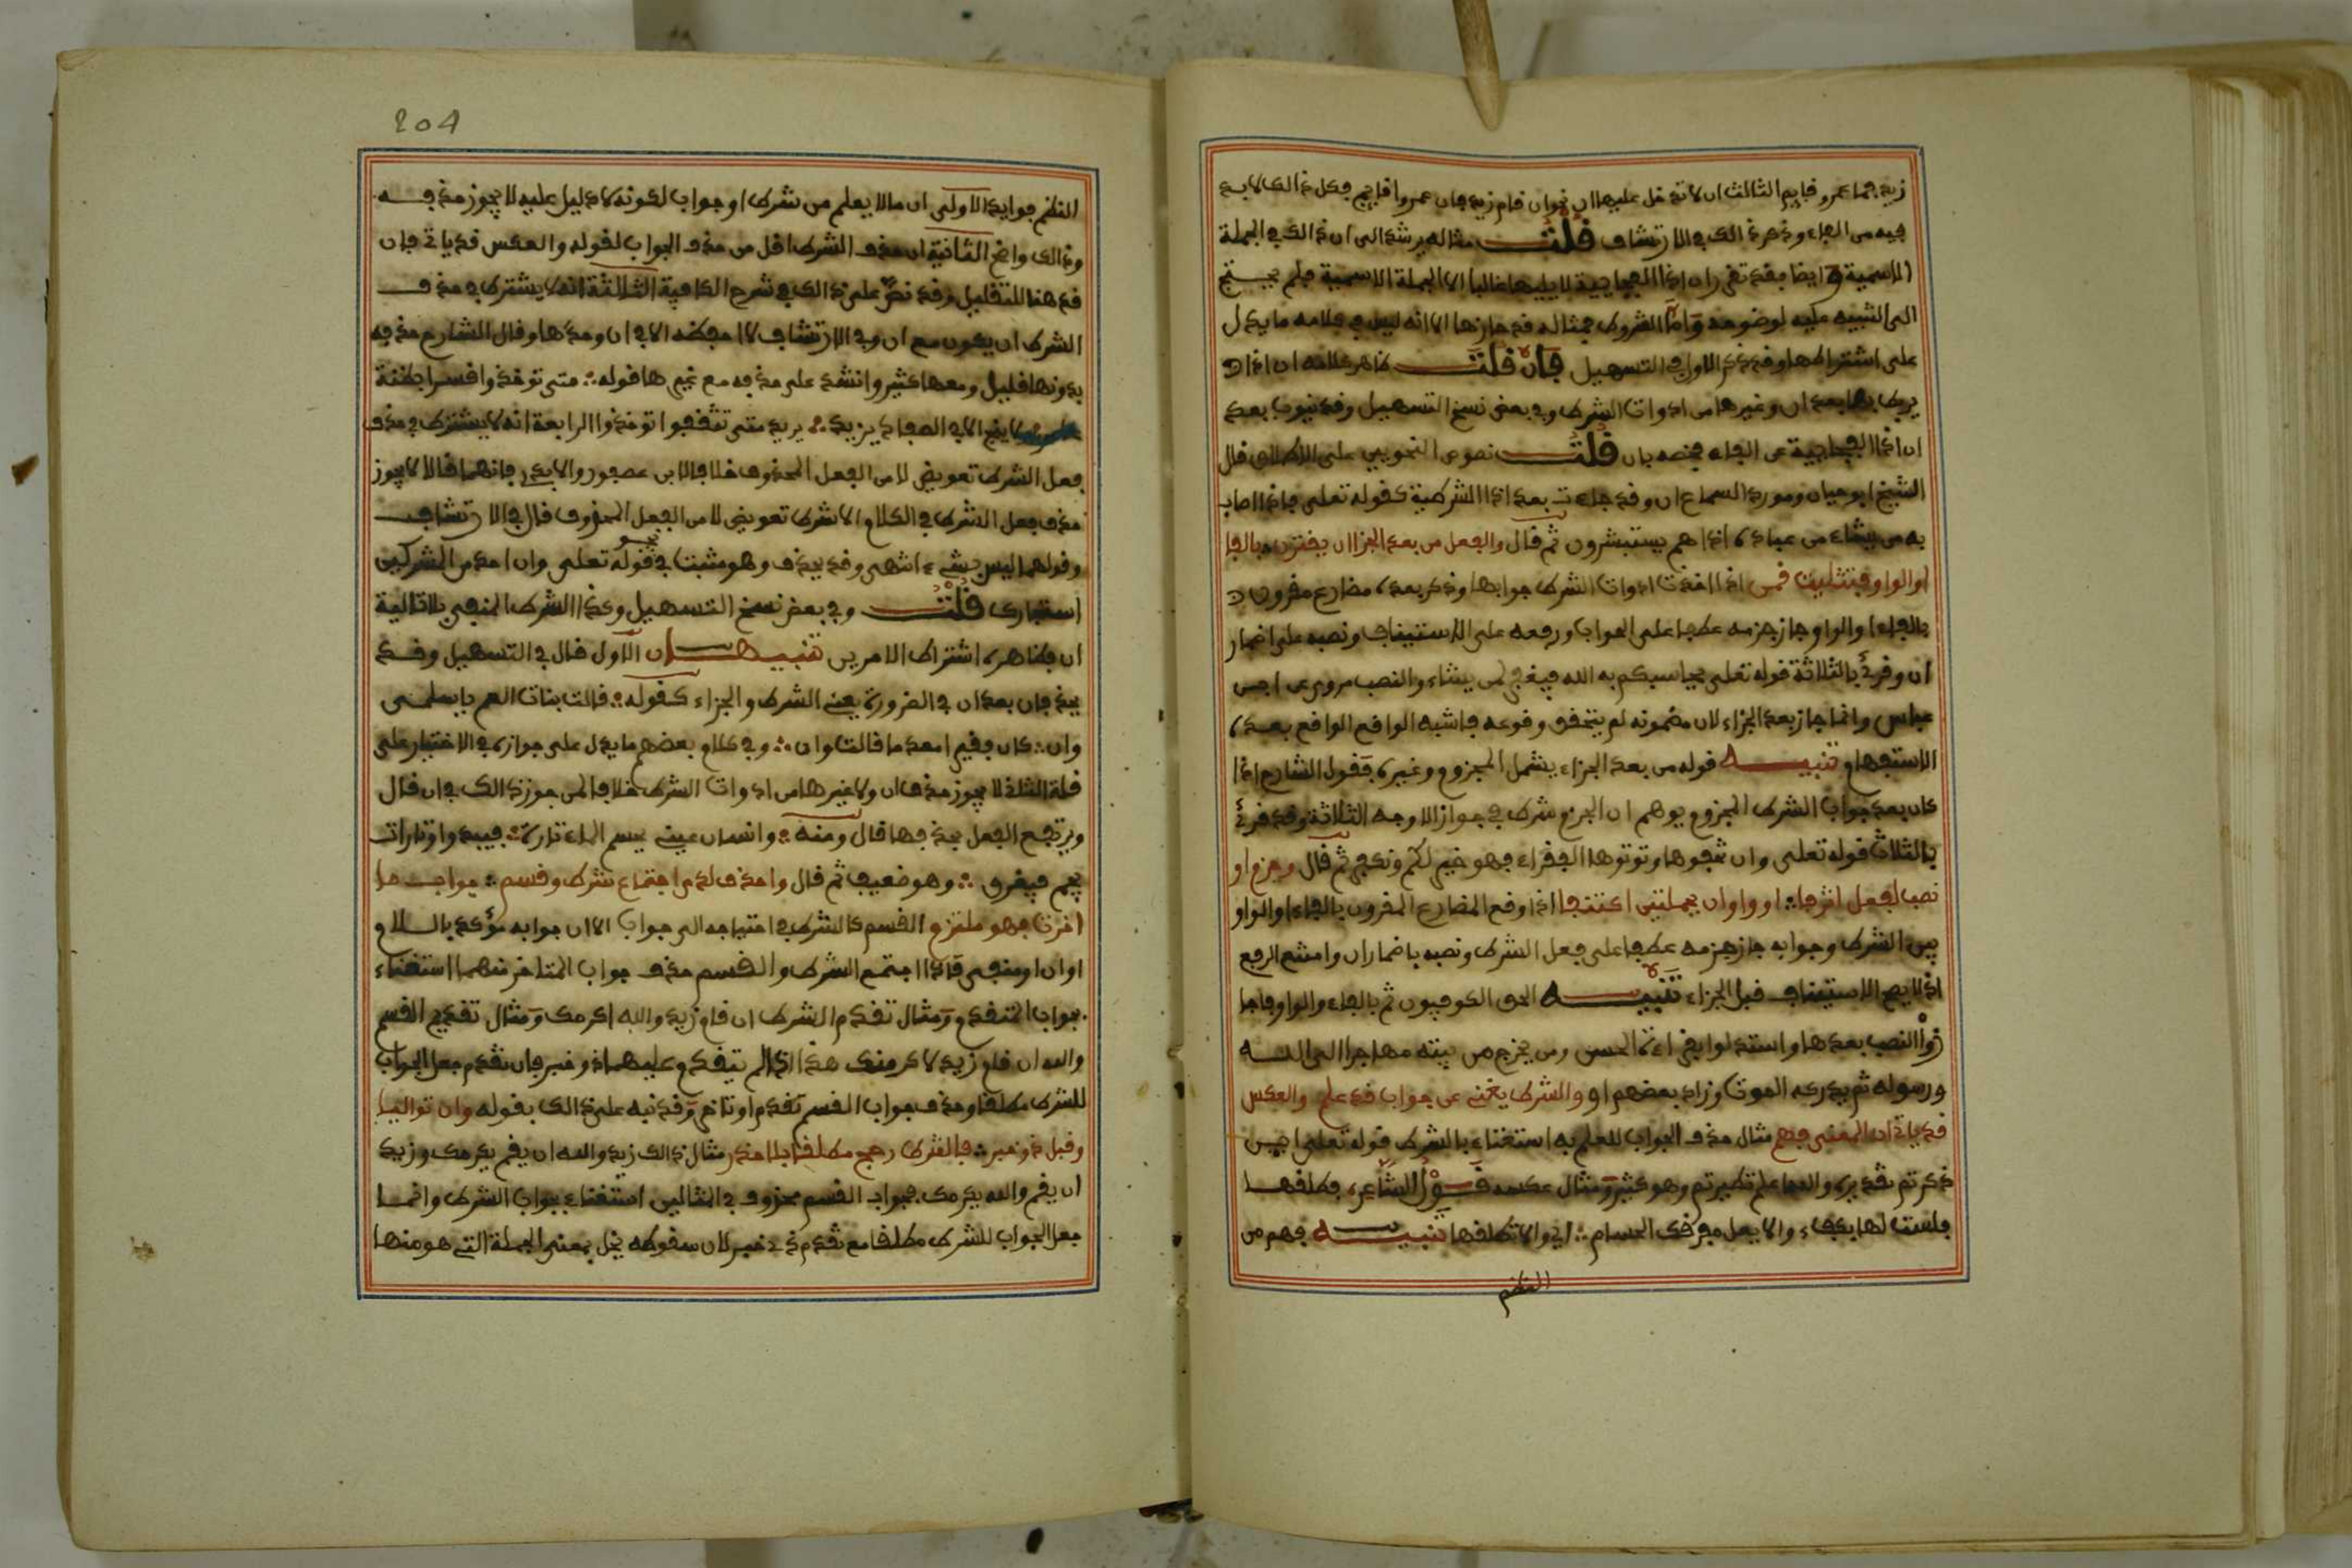 زيد فما عمرو قايم الثالث ان لا تدخل عليها ان نحو ان قام زيد فان عمروا قايم فكل ذالك لا بد
فيه من الفاء وذكر ذالك في الارتشاف قلت مثاله يرشد الى ان ذالك في الجملة
الاسمية ايضا فقد تقرر ان اذا الفجاءية لا يليها غالبا الا الجملة الاسمية فلم يحتج
الى التنبيه عليه لوضوحه واما الشروط فمثاله قد حازها الا انه ليس في كلامه ما يدل
على اشتراطها وقد ذكر الاول في التسهيل فان قلت ظاهر كلامه ان اذا
يربط بها بعد ان وغيرها من ادوات الشرط وفي بعض نسخ التسهيل وقد تنوب بعد
ان اذا الفجاءية عن الفاء فخصه بان قلت نصوص النحويين على الاطلاق قال
الشيخ ابو حيان ومورد السماع ان وقد جاءت بعد اذا الشرطية كقوله تعلى فاذا اصاب
به من يشاء من عباده اذا هم يستبشرون ثم قال والفعل من بعد الجزا ان يقترن بالفا
او الواو بتثليث قمن اذا اخذت ادوات الشرط جوابها وذكر بعده مضارع مقرون
بالفاء او الواو جاز جزمه عطفا على الجواب ورفعه على الاستيناف ونصبه على اضمار
ان وقرئ بالثلاثة قوله تعلى يحاسبكم به الله فيغفر لمن يشاء والنصب مروي عن ابن
عباس وانما جاز بعد الجزاء لان مضمونه لم يتحقق وقوعه فاشبه الواقع الواقع بعده
الاستفهام تنبيه قوله من بعد الجزاء يشمل المجزوم وغيره فقول الشارح اذا
كان بعد جواب الشرط المجزوم يوهم ان الجزم شرط في جواز الاوجه الثلاثة وقد قرئ
بالثلاث قوله تعلى وان تخفوها وتوتوها الفقراء فهو خير لكم ونكفر ثم قال وجزم او
نصب لفعل اثر فا او واو ان بجملتين اكتنفا اذا وقع المضارع المقرون بالفاء او الواو
بين الشرط وجوابه جاز جزمه عطفا على فعل الشرط ونصبه باضمار ان وامتنع الرفع
اذ لا يصح الاستيناف قبل الجزاء تنبيه الحق الكوفيون ثم بالفاء والواو فاجا
زوا النصب بعدها واستدلوا بقراءة الحسن ومن يخرج من بيته مهاجرا الى الله
ورسوله ثم يدركه الموت وزاد بعضهم او والشرط يغني عن جواب قد علم والعكس
قد ياتي ان المعنى فهم مثال حذف الجواب للعلم به استغناء بالشرط قوله تعلى ايين
ذكرتم تقديره والله اعلم تطيرتم وهو كثير ومثال عكسه قول الشاعر فطلقها
فلست لها بكفء والا يعل مفرقك الحسام اي والا تطلقها تنبيه فهم من
النظم
204
النظم فوايد الاولى ان ما لا يعلم من شرط او جواب لكونه لا دليل عليه لا يجوز حذفه
وذالك واضح الثانية ان حذف الشرط اقل من حذف الجواب لقوله والعكس قد ياتي فان
قد هنا للتقليل وقد نص على ذالك في شرح الكافية الثالثة انه لا يشترط في حذف
الشرط ان يكون مع ان وفي الارتشاف لا احفظه الا في ان وحدها وقال الشارح حذفه
بدونها قليل ومعها كثير وانشد على حذفه مع غيرها قوله متى توخذوا قسرا بظنة
عامر ولا ينج الا في الصفاد يزيد يريد متى تثقفوا توخذوا الرابعة انه لا يشترط في حذف
فعل الشرط تعويض لا من الفعل المحذوف خلافا لابن عصفور والابدي فانهما قالا لا يجوز
حذف فعل الشرط في الكلام الا بشرط تعويض لا من الفعل المحذوف قال في الارتشاف
وقولهما ليس بشيء انتهى وقد يحذف وهو مثبت في نحو قوله تعلى وان احد من المشركين
استجارك قلت وفي بعض نسخ التسهيل وكذا الشرط المنفي بلا تالية
ان فظاهره اشتراط الامرين تنبيهان الاول قال في التسهيل وقد
يحذفان بعد ان في الضرورة يعني الشرط والجزاء كقوله قالت بنات العم يا سلمى
وان كان فقيرا معدما قالت وان وفي كلام بعضهم ما يدل على جوازه في الاختيار على
قلة الثاني لا يجوز حذف ان ولا غيرها من ادوات الشرط خلافا لمن جوز ذالك في ان قال
ويرتفع الفعل بحذفها قال ومنه وانسان عيني يحسر الماء تارة فيبدوا وتارات
يجم فيغرق وهو ضعيف ثم قال واحذف لدى اجتماع شرط وقسم جواب ما
اخرت فهو ملتزم القسم كالشرط في احتياجه الى جواب الا ان جوابه مؤكد باللام
او ان او منفي فاذا اجتمع الشرط والقسم حذف جواب المتاخر منهما استغناء
بجواب المتقدم ومثال تقدم الشرط ان قام زيد والله اكرمك ومثال تقديم القسم
والله ان قام زيد لاكرمنك هذا اذا لم يتقدم عليهما ذو خبر فان تقدم جعل الجواب
للشرط مطلقا وحذف جواب القسم تقدم او تاخر وقد نبه على ذالك بقوله وان تواليا
وقبل ذو خبر فالشرط رجح مطلقا بلا حذر مثال ذالك زيد والله ان يقم يكرمك وزيد
ان يقم والله يكرمك فجواب القسم محذوف في المثالين استغناء بجواب الشرط وانما
جعل الجواب للشرط مطلقا مع تقدم ذي خبر لان سقوطه يخل بمعنى الجملة التي هو منها